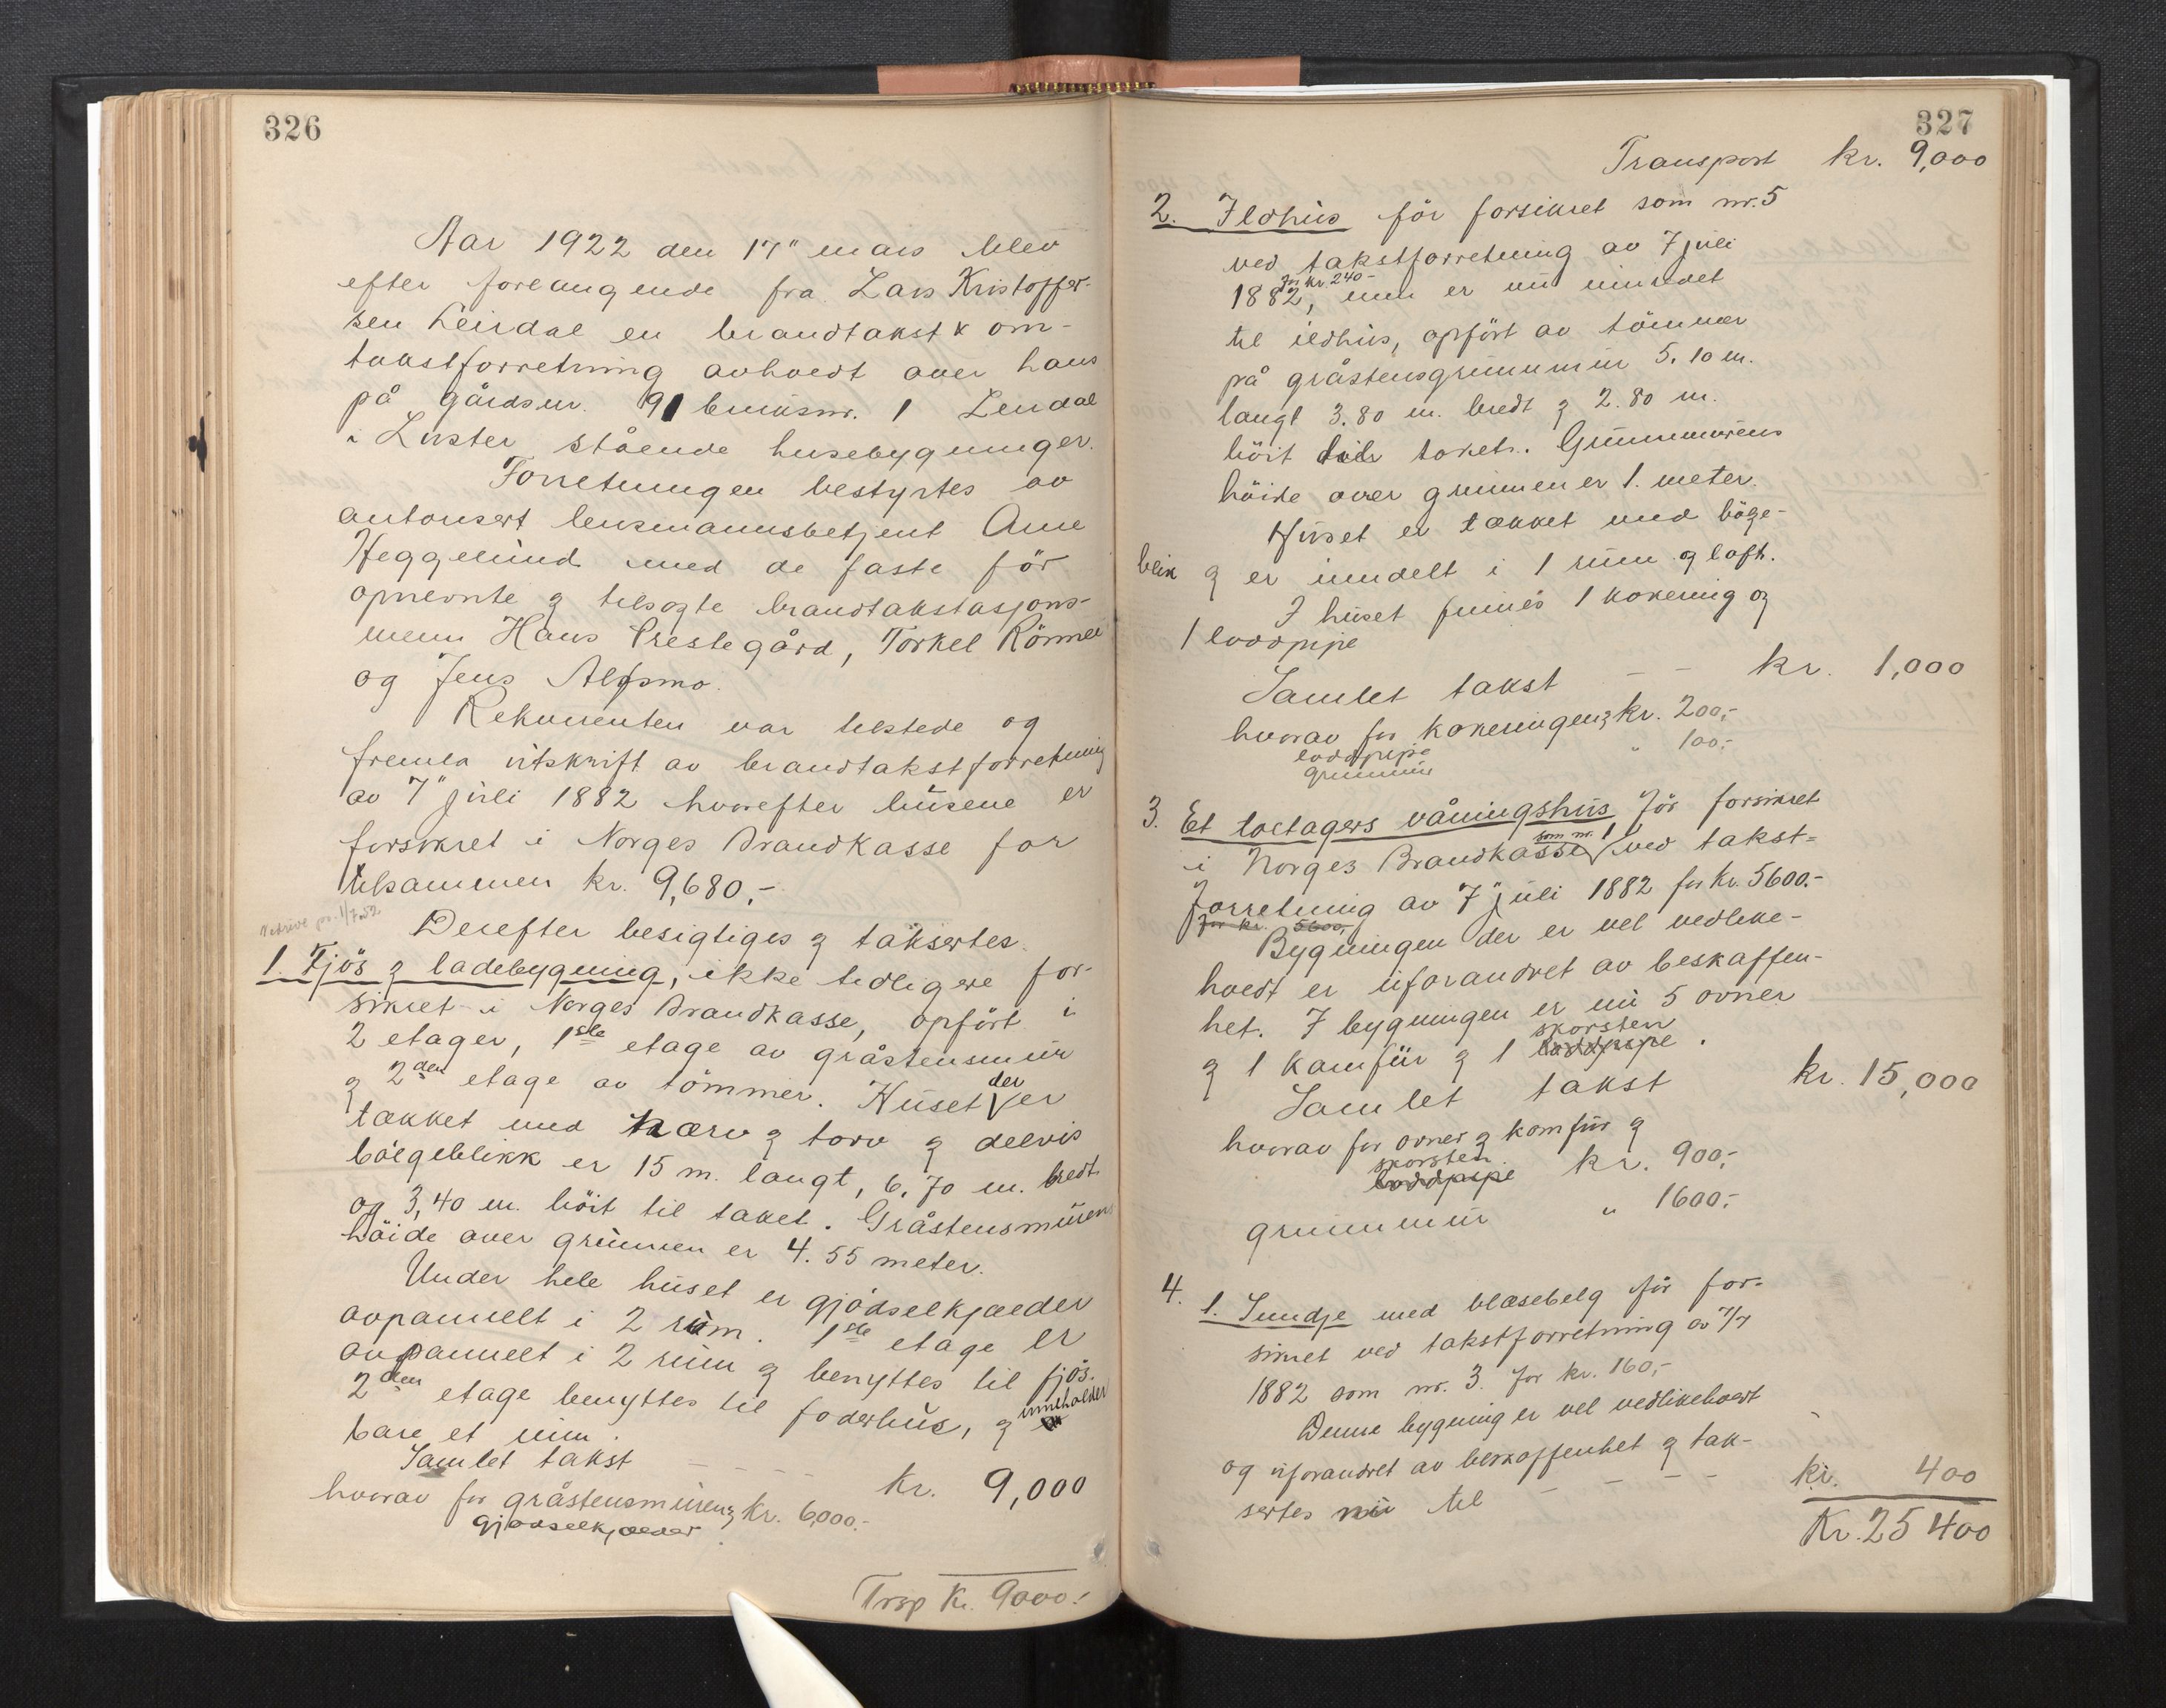 326
Aar 1922 den 17" mars blev
efter foreangende fra Lars Kristoffer-
sen Leirdal en brandtakst & om-
takstforretning avhoedt over hans
på gårdsnr. 91 bruksnr. 1 Leirdal
i Luster stående husebygninger.
Forretningen bestyrtes av
autorisert lensmannsbetjent Arne
Heggelund med de faste før
opnevnte & tilsagte brandtakstasjons-
menn Hans Prestegård, Torkel Rönnei
og Jens Alfsmo.
Rekvirenten var tilstede og
fremla utskrift av brandtakstforretning
av 7" juli 1882 hvorefter husene er
forsikret i Norges Brandkasse for
tilsammen kr. 9,680,-
Derefter besigtiges & taksertes.
1. Fjös & ladebygning, ikke tidligere for-
sikret i Norges Brandkasse, opfört i
2 etager, 1ste etage av gråstensmur
& 2den etage av tömmer. Huset der er
tækket med næver & torv & delvis
bölgeblikk er 15 m. langt, 6,70 m. bredt
og 3,40 m. höit til taket. Gråstensmuren
höide over grunnen er 4.55 meter.
Under hele huset er gjödselkjælder
avpannelt i 2 rum. 1ste etage er
avpannelt i 2 rum & benyttes til fjös.
2den etage benyttes til foderhus, & inneholder
bare et rum.
Samlet takst - - - - kr. 9,000
hvorav for gråstensmuren & kr. 6,000.-
gjödselkjælder
Trsp Kr. 9000.-
327
Transport kr. 9,000
2. Ildhus för forsikret som nr. 5
ved takstforretning av 7 juli
1882, for kr. 240- men er nu innredet
til ildhus, opfört av tömmer
på gråstensgrunnmur 5.10 m.
langt 3.80 m. bredt & 2.80 m.
höit til taket. Grunnmurens
höide over grunnen er 1. meter.
Huset er tækket med bölge-
blik & er inndelt i 1 rum og loft.
I huset finnes 1 kokering og
1 loddpipe
Samlet takst - - kr. 1,000
hvorav for kokeringen & kr. 200,-
loddpipe
grunnmur " 100,-
3. Et toetagers våningshus för forsikret
i Norges Brandkasse som nr. 1 ved takst=
forretning av 7" juli 1882 for kr. 5600.-
for kr. 5600,
Bygningen der er vel vedlike-
hoedt er uforandret av beskaffen-
het. I bygningen er nu 5 ovner
& 1 komfür & 1 loddpipe skorsten.
Samlet takst kr. 15,000
hvorav for ovner & komfür &
loddpipe skorsten kr. 900,-
grunnmur " 1600,-
4. 1. Smidje med blæsebelg för for-
sikret ved takstforretning av 7/7
1882 som nr. 3. for kr. 160,-
Denne bygning er vel vedlikehoedt
og uforandret av beskaffenhet & tak-
sertes nu til - - - - kr. 400
Kr. 25 400